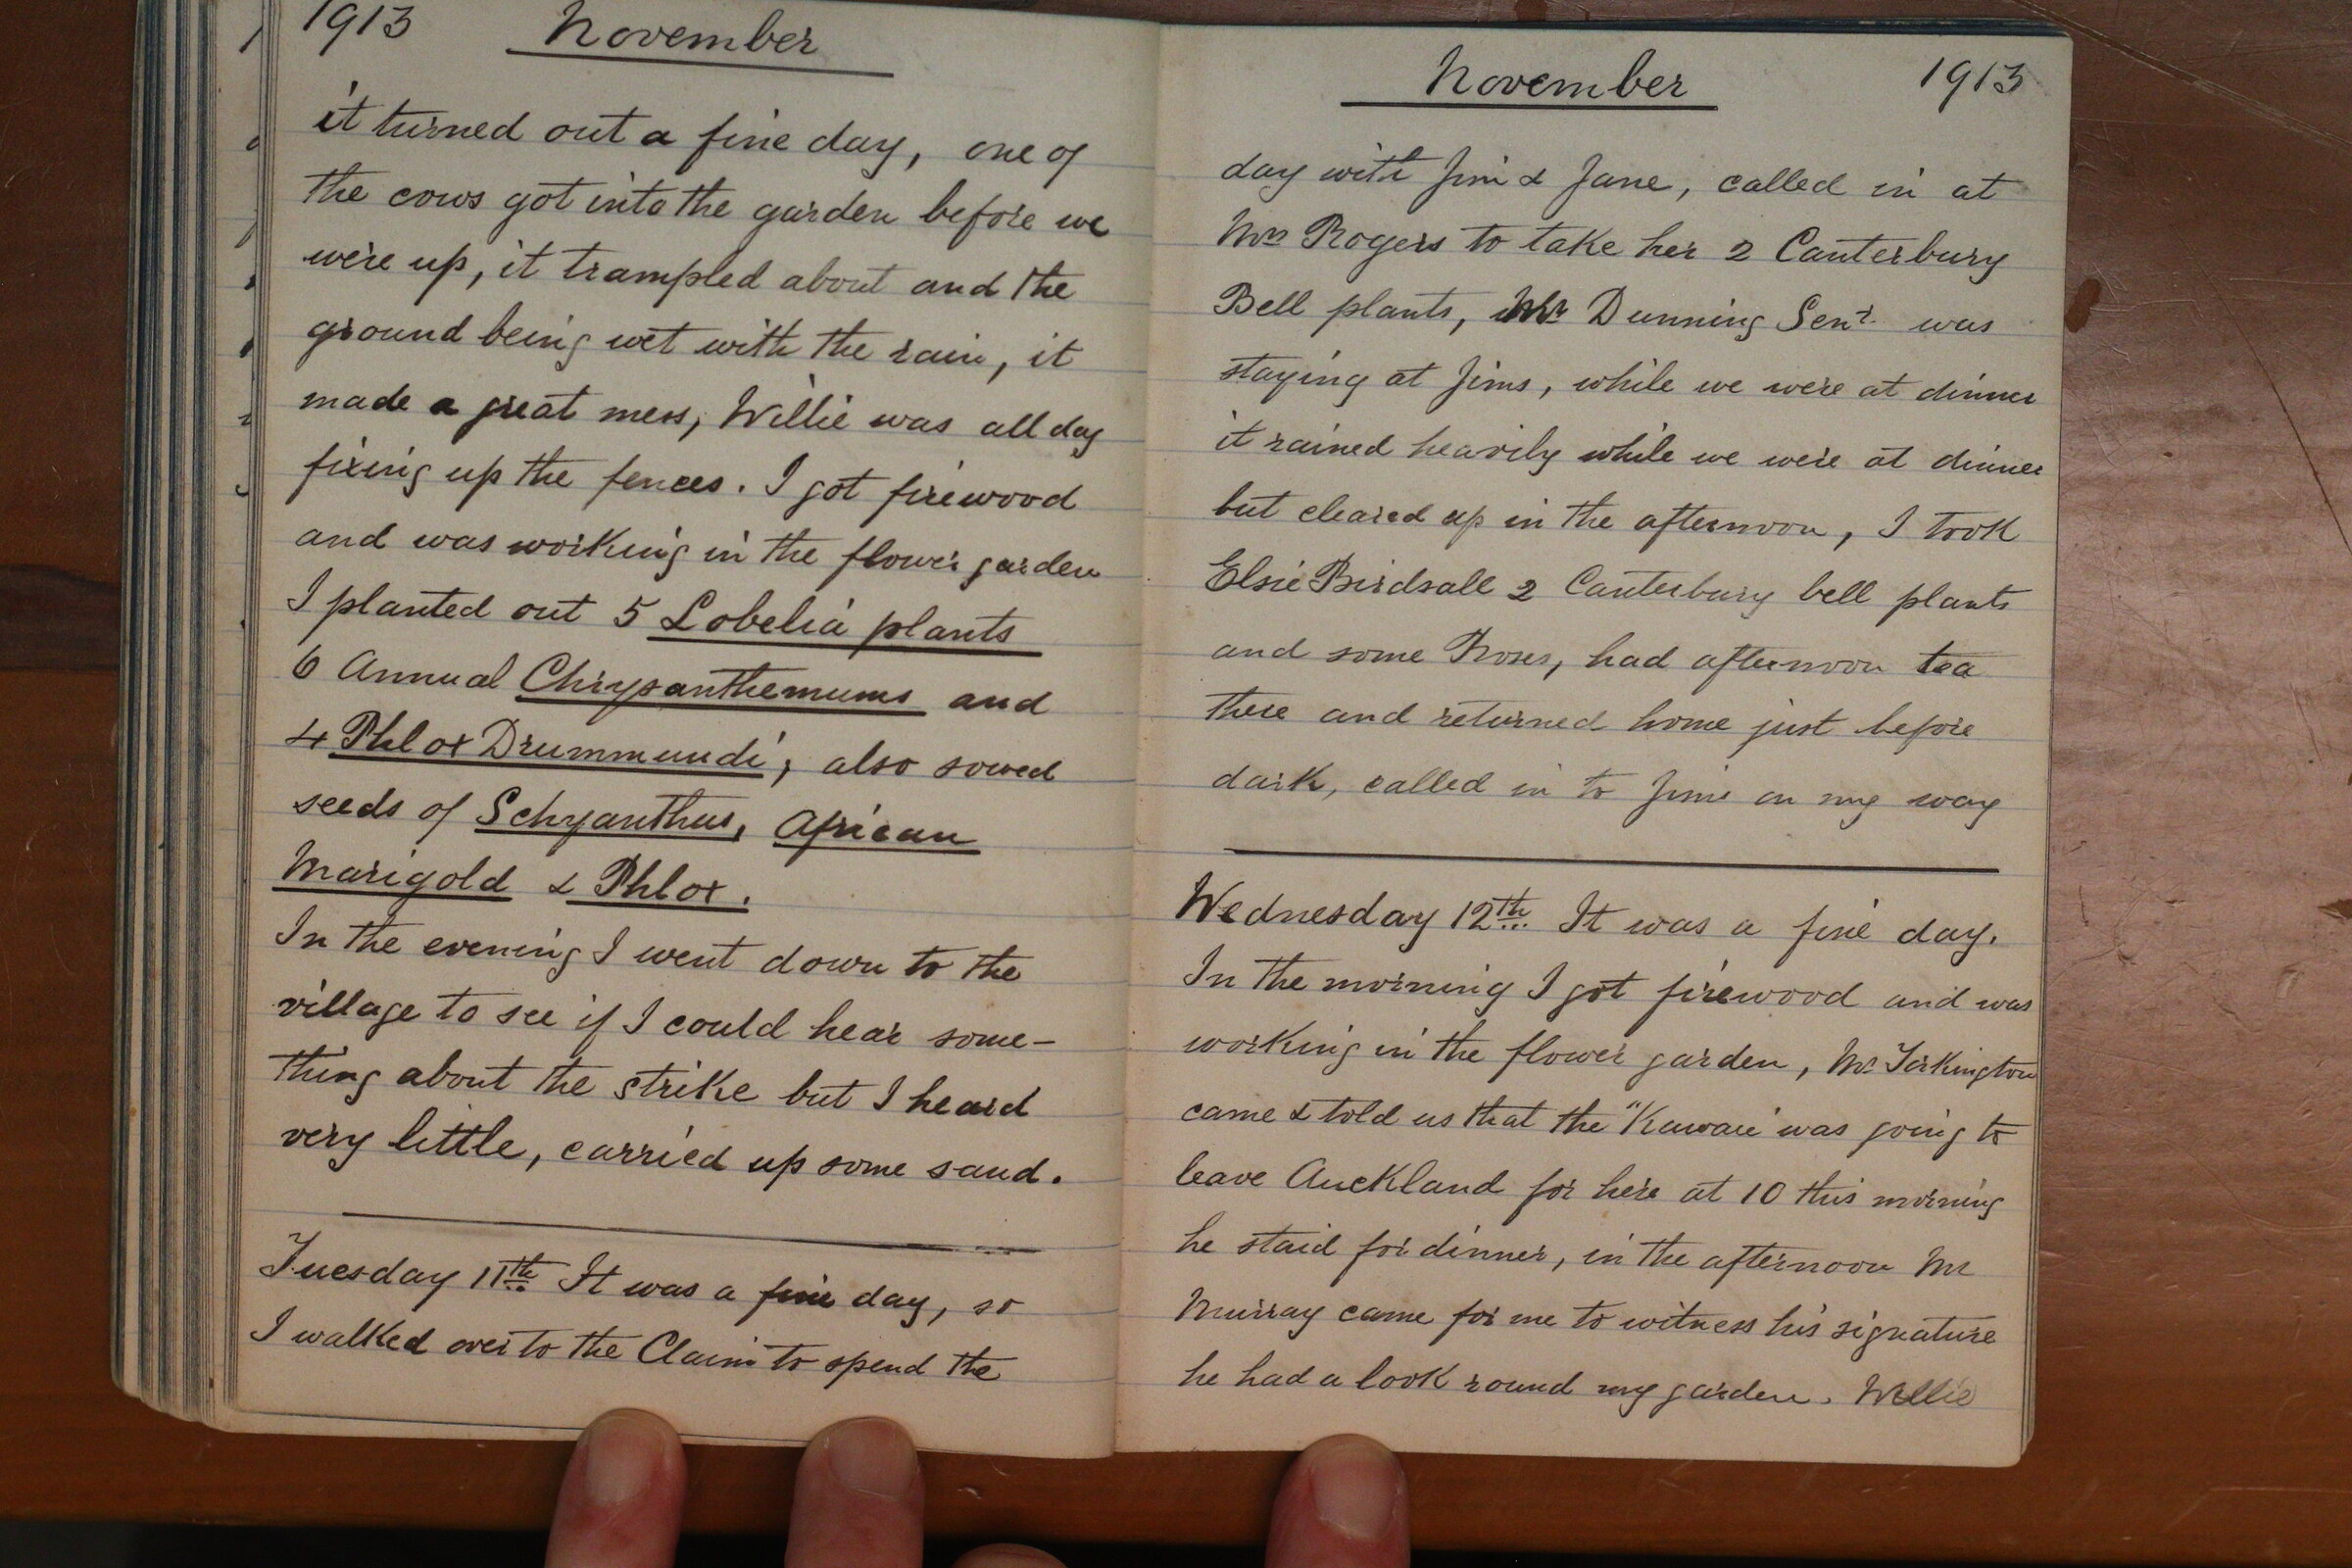 1913 November
it turned out a fine day, one of
the cows got into the garden before we
were up, it trampled about and the
ground being wet with the rain, it
made a great mess, Willie was all day
fixing up the fences. I got firewood
and was working in the flower garden
I planted out 5 Lobelia plants
6 Annual Chrysanthemums and
4 Phlox Drummundi, also sowed
seeds of Schyanthus, African
Marigold & Phlox.
In the evening I went down to the
village to see if I could hear some-
thing about the strike but I heard
very little, carried up some sand.
Tuesday 11th It was a fine day, so
I walked over to the Claim to spend the
November 1913
day with Jim & Jane, called in at
Mrs Rogers to take her 2 Canterbury
Bell plants, Mr Dunning Senr. was
staying at Jims, while we were at dinner
it rained heavily while we were at dinner
but cleared up in the afternoon, I took
Elsie Birdsall 2 Canterbury bell plants
and some Roses, had afternoon tea
there and returned home just before
dark, called in to Jims on my way
Wednesday 12th It was a fine day.
In the morning I got firewood and was
working in the flower garden, Mr Torkington
came & told us that the "Kawau" was going to
leave Auckland for here at 10 this morning
he staid for dinner, in the afternoon Mr
Murray came for me to witness his signature
he had a look round my garden. Willie